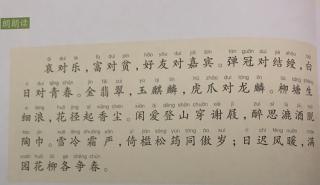 朗朗读
哀对乐，富对贫，好友对嘉宾。弹冠对结绶，白
日对青春。金翡翠，玉麒麟，虎爪对龙麟。柳塘生
细浪，花径起香尘。闲爱登山穿谢屐，醉思漉酒脱
陶巾。雪冷霜严，倚槛松筠同傲岁；日迟风暖，满
园花柳各争春。